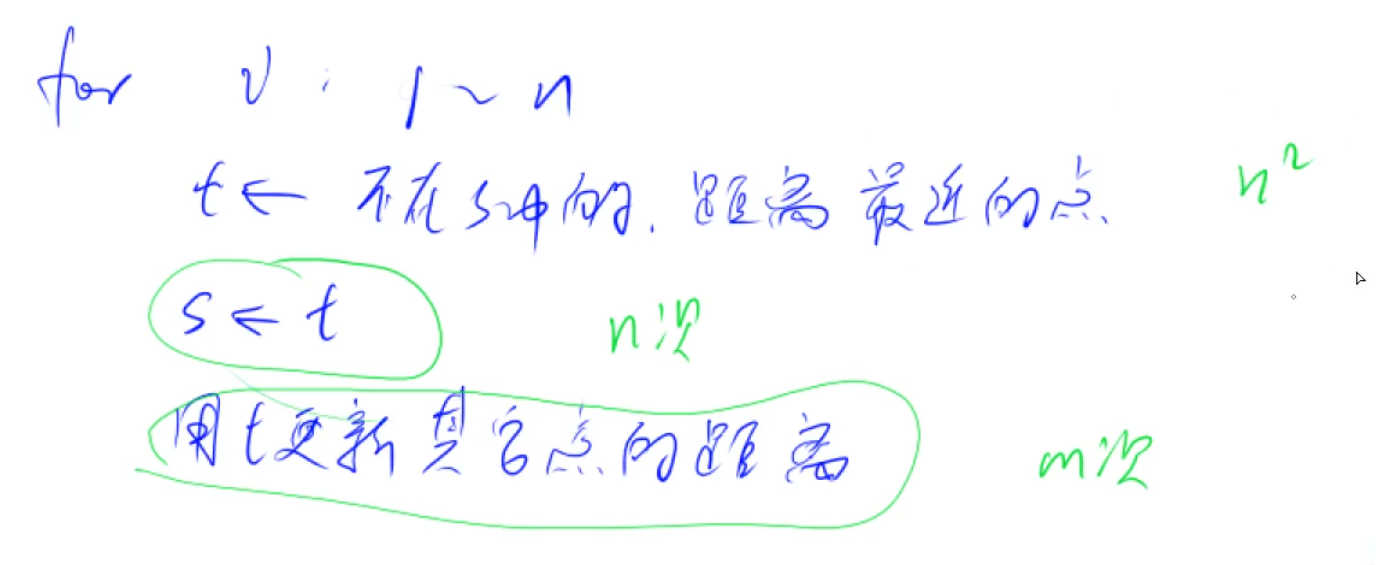 for i : 1 ~ n
t ← 不在s中的, 距离最近的点 n²
s ← t n次
用t更新其它点的距离 m次